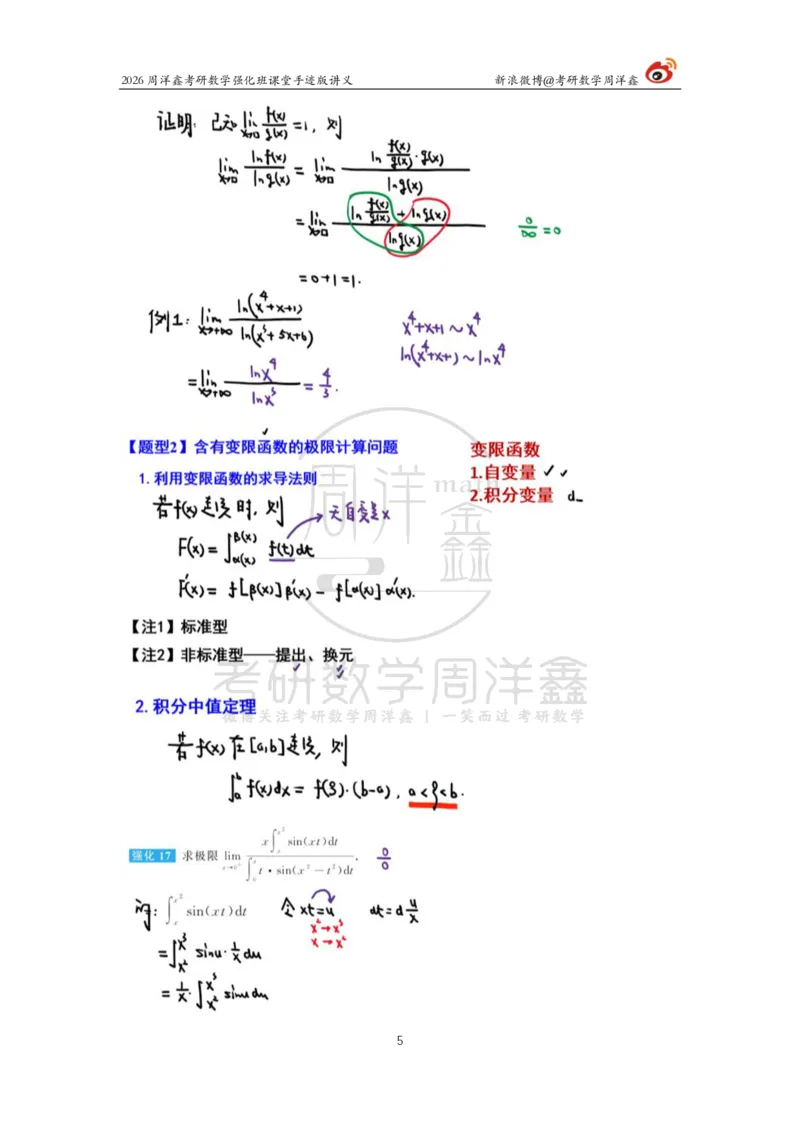 2026 周洋鑫考研数学强化班课堂手迹版讲义 新浪微博@考研数学周洋鑫
证明: 已知 lim_{x→□} f(x)/g(x) = 1, 则
lim_{x→□} ln f(x)/ln g(x) = lim_{x→□} ln [f(x)/g(x) · g(x)] / ln g(x)
= lim_{x→□} [ln f(x)/g(x) + ln g(x)] / ln g(x) 0/∞ = 0
= 0+1 = 1.
例1: lim_{x→+∞} ln(x^4+x+1)/ln(x^3+5x+6) x^4+x+1 ~ x^4
ln(x^4+x+1) ~ ln x^4
= lim_{x→+∞} ln x^4/ln x^3 = 4/3.
【题型2】含有变限函数的极限计算问题
变限函数
1.自变量 ✓ ✓
2.积分变量 d_
1. 利用变限函数的求导法则
若 f(x) 连续时, 则 无自变量 x
F(x) = ∫_{α(x)}^{β(x)} f(t)dt
F'(x) = f[β(x)]β'(x) - f[α(x)]α'(x).
【注1】标准型
【注2】非标准型——提出、换元
2. 积分中值定理
若 f(x) 在 [a,b] 连续, 则
∫_a^b f(x)dx = f(ξ)·(b-a), a<ξ<b.
强化 17 求极限 lim_{x→0^+} x∫_x^{x^2} sin(xt)dt / ∫_0^x t·sin(x^2-t^2)dt. 0/0
∫_x^{x^2} sin(xt)dt 令 xt=u dt = d u/x
x^2→x^3
x→x^2
= ∫_{x^2}^{x^3} sinu · 1/x du
= 1/x · ∫_{x^2}^{x^3} sinu du
周洋鑫
math
考研数学周洋鑫
微博关注考研数学周洋鑫 | 一笑而过 考研数学
5